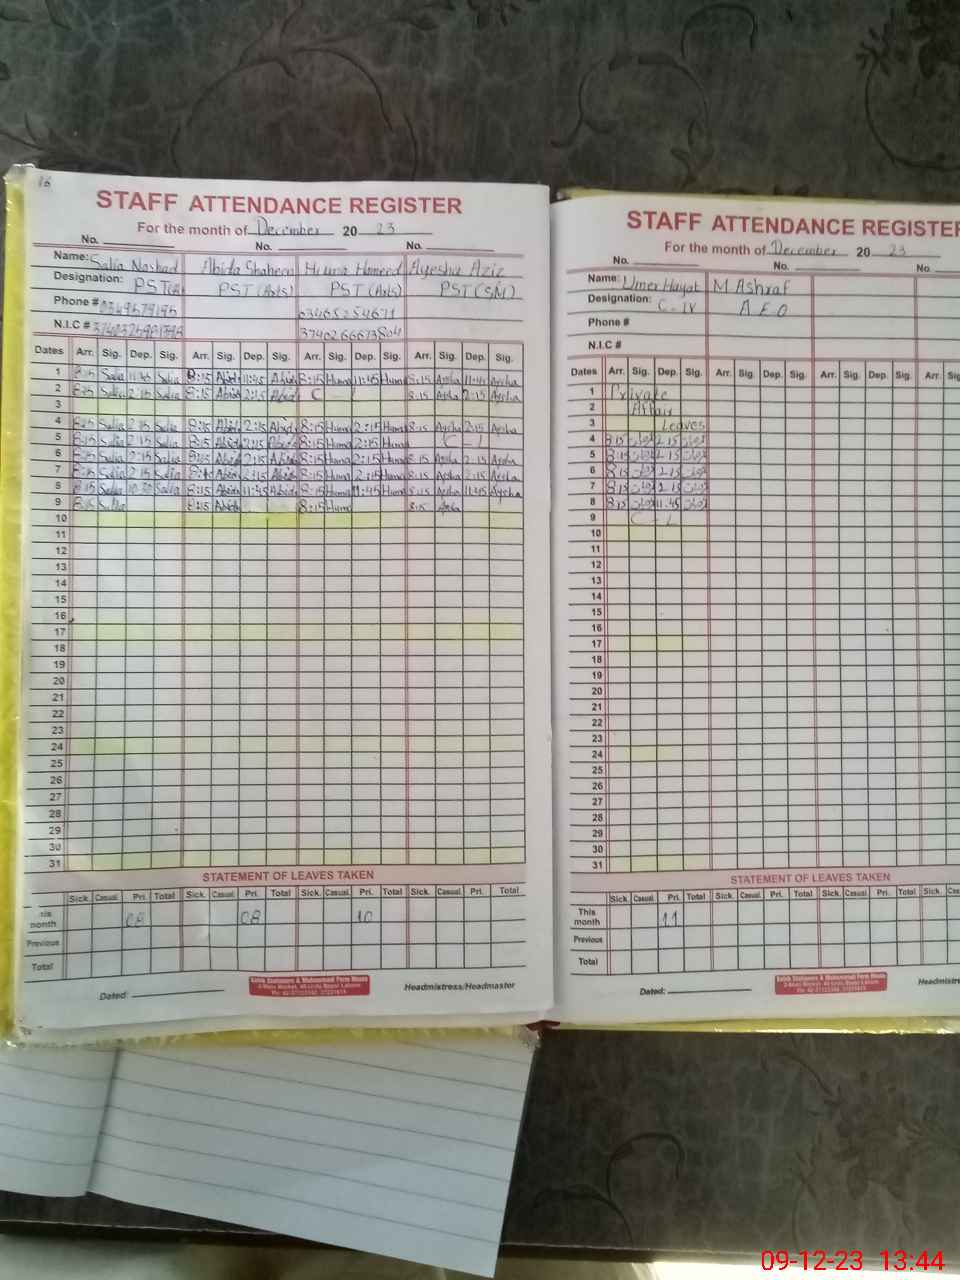 16
STAFF ATTENDANCE REGISTER
For the month of December 20 23
No. No. No.
Name: Abida Shaheen Huma Hameed Ayesha Aziz
Designation: PST(A) PST (Arts) PST (Arts) PST (SM)
Phone # 03465254671
N.I.C #
Dates Arr. Sig. Dep. Sig. Arr. Sig. Dep. Sig. Arr. Sig. Dep. Sig. Arr. Sig. Dep. Sig.
1 8:15 11:45 8:15 Abida 11:45 Abida 8:15 Huma 11:45 Huma 8:15 11:45
2 2:15 8:15 Abida 2:15 Abida C - 8:15 2:15
3
4 2:15 8:15 Abida 2:15 Abida 8:15 Huma 2:15 Huma 8:15 2:15
5 2:15 8:15 Abida 2:15 Abida 8:15 Huma 2:15 Huma C - L
6 2:15 8:15 Abida 2:15 Abida 8:15 Huma 2:15 Huma 8:15 2:15
7 2:15 Abida 2:15 Abida 8:15 Huma 2:15 Huma 8:15 2:15
8 8:15 10:30 8:15 Abida 11:45 Abida 8:15 Huma 11:45 Huma 8:15 11:45
9 8:15 Abida 8:15 Huma 8:15
10
11
12
13
14
15
16
17
18
19
20
21
22
23
24
25
26
27
28
29
30
31
STATEMENT OF LEAVES TAKEN
Sick. Casual. Pri. Total Sick. Casual. Pri. Total Sick. Casual. Pri. Total Sick. Casual. Pri. Total
This month 08 08 10
Previous
Total
Dated: Headmistress/Headmaster
STAFF ATTENDANCE REGISTER
For the month of December 20 23
No. No. No.
Name: Umer Hayat M Ashraf
Designation: C-IV A E O
Phone #
N.I.C #
Dates Arr. Sig. Dep. Sig. Arr. Sig. Dep. Sig. Arr. Sig. Dep. Sig. Arr. Sig.
1 Private
2 Affair
3 Leaves
4 8:15 2:15
5 8:15 2:15
6 8:15 2:15
7 8:15 2:15
8 8:15 11:45
9 C - L
10
11
12
13
14
15
16
17
18
19
20
21
22
23
24
25
26
27
28
29
30
31
STATEMENT OF LEAVES TAKEN
Sick. Casual. Pri. Total Sick. Casual. Pri. Total Sick. Casual. Pri. Total Sick. Casual
This month 11
Previous
Total
Dated:
09-12-23 13:44